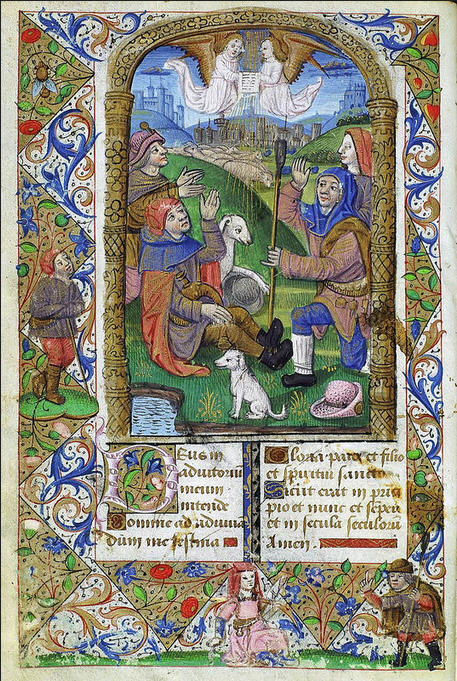 Deus in
adiutoriū
meum
intende
Domine ad adiuuā
dum me festina
Gloria patri et filio
et spiritui sancto
Sicut erat in prīci
pio et nunc et sēper
et in secula seculorū
Amen.